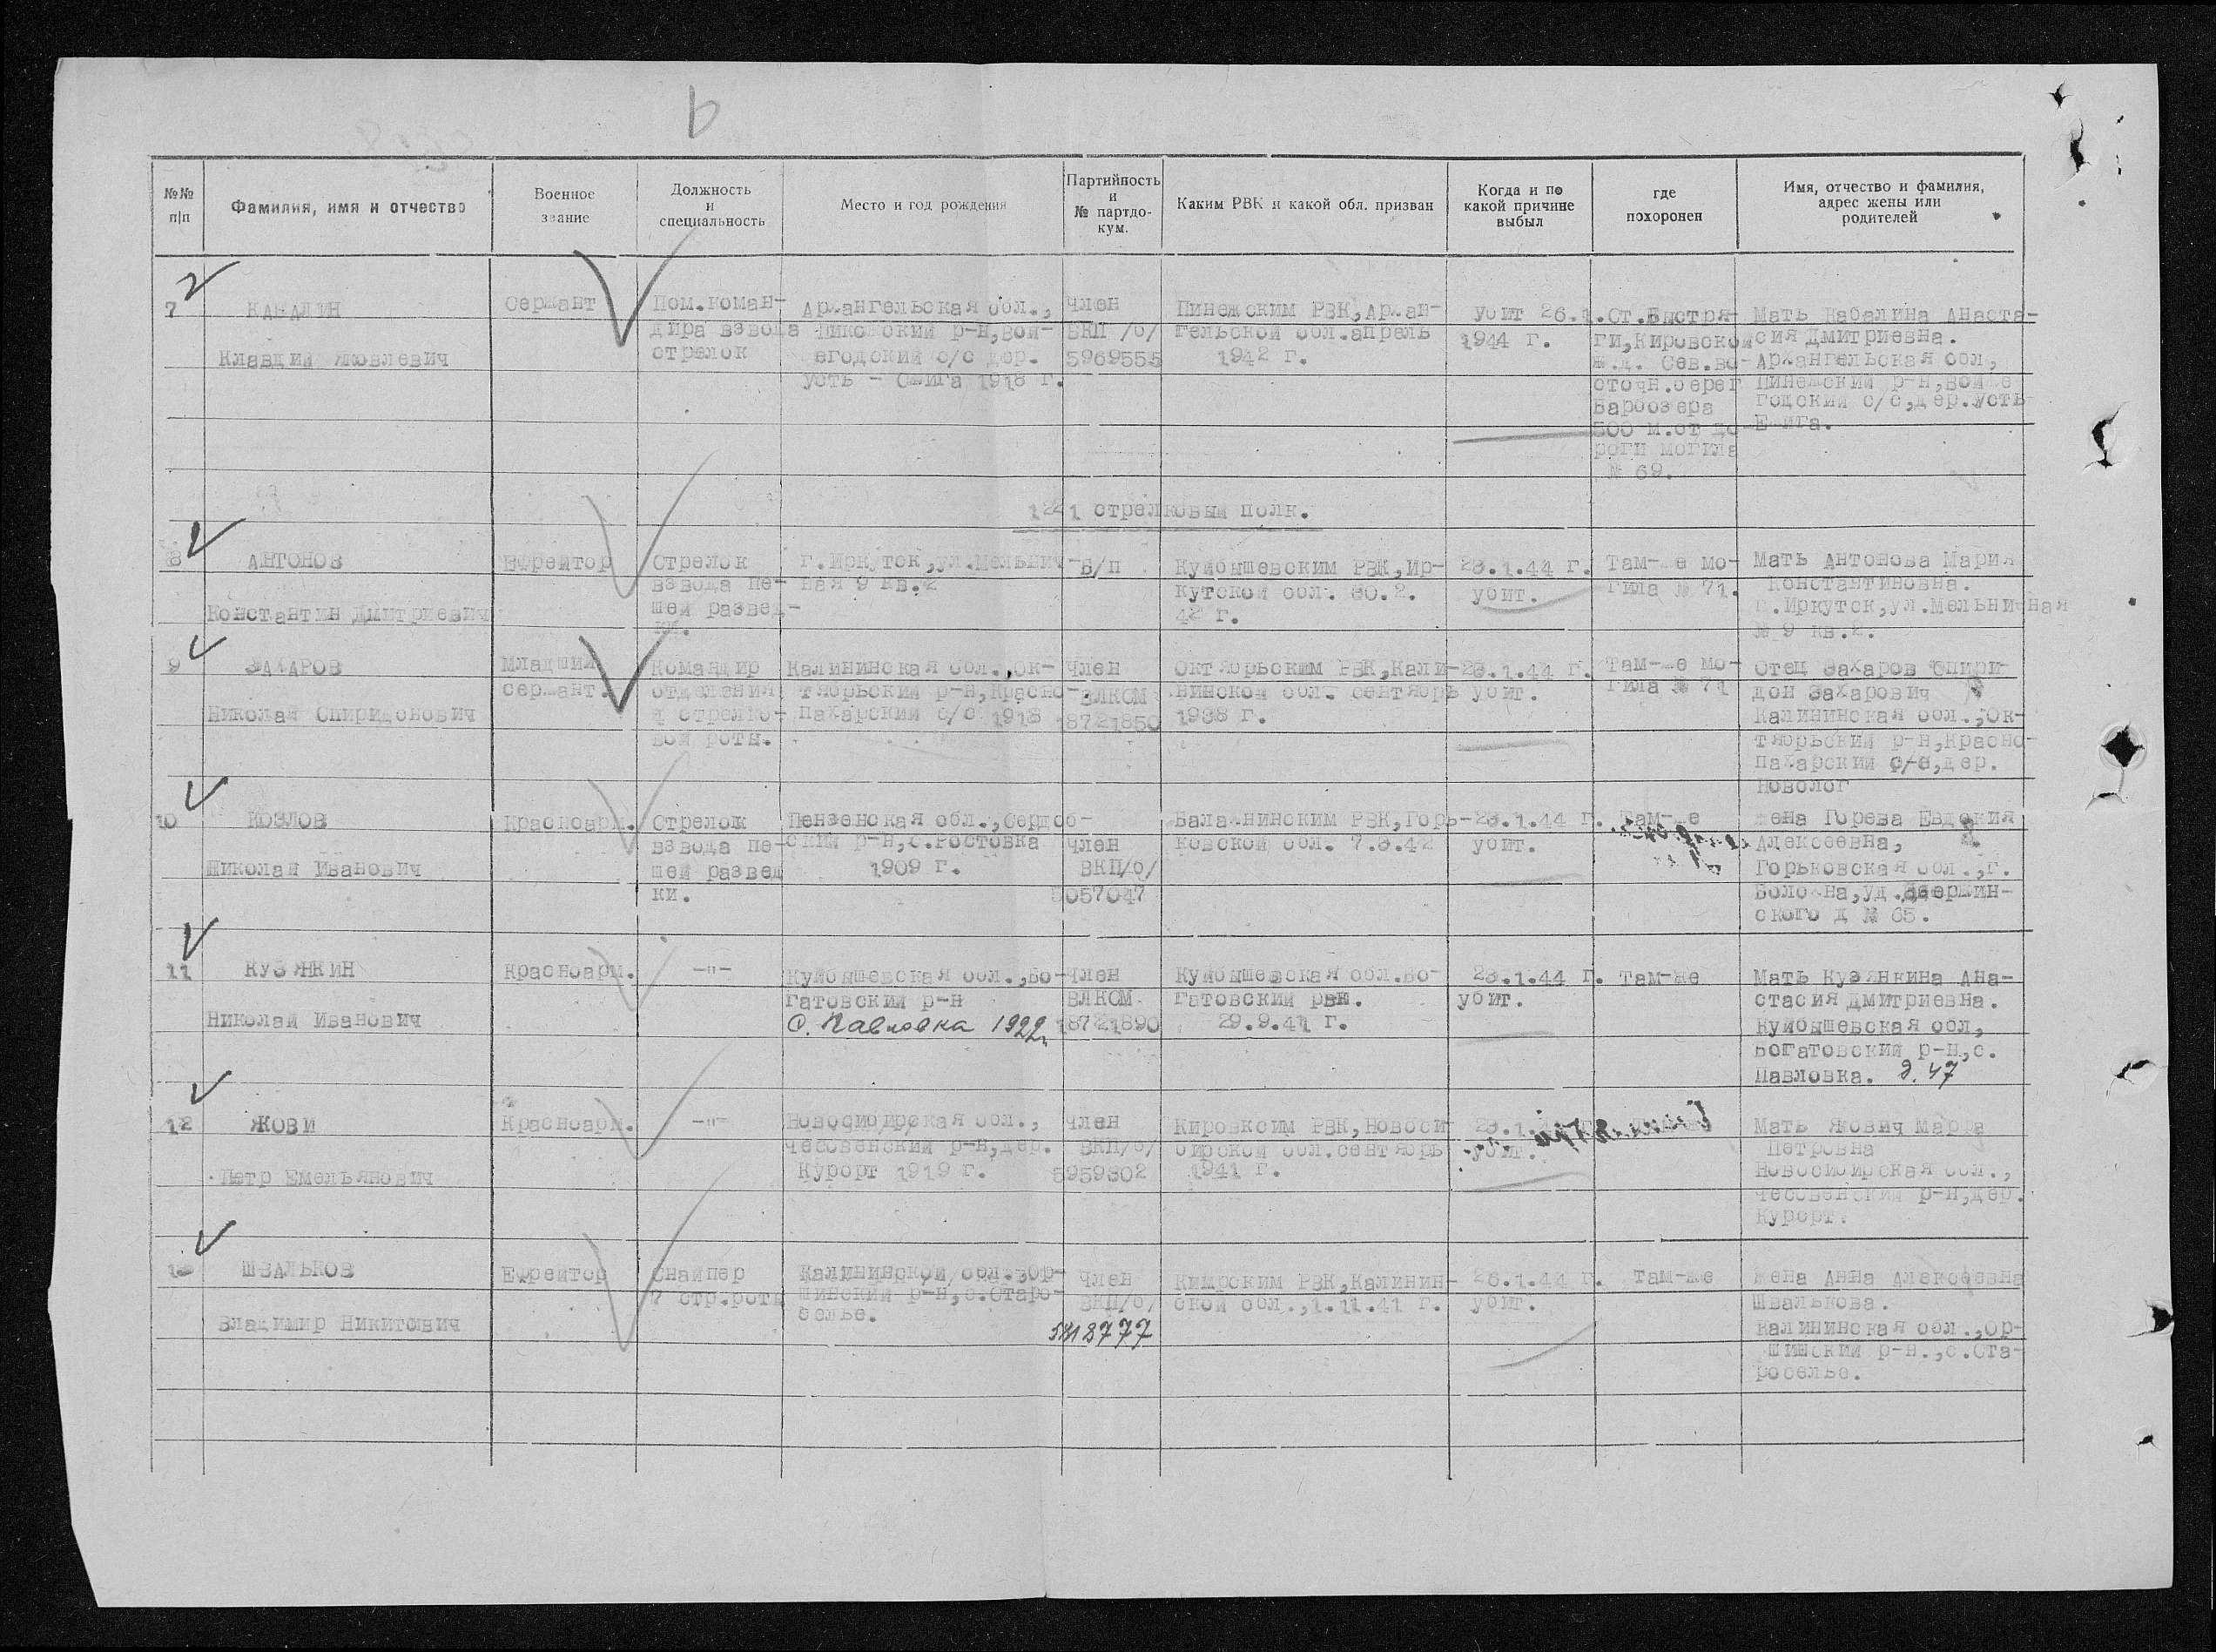 №№ п|п
Фамилия, имя и отчество
Военное звание
Должность и специальность
Место и год рождения
Партийность и № партдокум.
Каким РВК и какой обл. призван
Когда и по какой причине выбыл
где похоронен
Имя, отчество и фамилия, адрес жены или родителей
7
КАБАЛИН
Клавдий Яковлевич
Сержант
Пом.коман-
дира взвода
стрелок
Архангельская обл.,
р-н,Вой-
егодский с/с дер.
Усть - 1918 г.
Член
ВКП /б/
5969555
Пинежским РВК,Архан-
гельской обл.апрель
1942 г.
Убит 26.1.
1944 г.
Ст.Быстря-
ги,Кировской
ж.д. Сев.во-
сточн.берег
Барбозера
500 м.от до-
роги могила
№ 69.
Мать Кабалина Анаста-
сия Дмитриевна.
Архангельская обл,
Пинежский р-н,Войе
годский с/с,дер.Усть
Ежига.
1221 стрелковый полк.
8
АНТОНОВ
Константин Дмитриевич
Ефрейтор
Стрелок
взвода пе-
шей развед-
ки.
г.Иркутск,ул.Мельнич-
ная 9 кв.2
Б/п
Куйбышевским РВК,Ир-
кутской обл. 30.2.
42 г.
23.1.44 г.
убит.
Там-же мо-
гила № 71.
Мать Антонова Мария
Константиновна.
г.Иркутск,ул.Мельничная
№ 9 кв.2.
9
ЗАХАРОВ
Николай Спиридонович
Младший
сержант.
Командир
отделения
4 стрелко-
вой роты.
Калининская обл.,Ок-
тяорьский р-н,Красно-
пахарский с/с 1918
Член
ВЛКОМ
18721850
Октяорьским РВК,Кали-
нинской обл. сентяорь
1938 г.
23.1.44 г.
убит.
Там-же мо-
гила № 71
Отец Захаров Спири-
дон Захарович
Калининская обл.,Ок-
тяорьский р-н,Красно-
пахарский с/с,дер.
Новолог
10
КОЗЛОВ
Николай Иванович
Красноарм.
Стрелок
взвода пе-
шей развед
ки.
Пензенская обл.,Сердоб-
ский р-н,с.Ростовка
1909 г.
Член
ВКП/б/
5057047
Балахнинским РВК,Горь-
ковской обл. 7.3.42
23.1.44 г.
убит.
Там-же
Жена Горева Евдокия
Алексеевна,
Горьковская обл.,г.
Болохна,ул.Дзержин-
ского д № 65.
11
КУЗЯНКИН
Николай Иванович
Красноарм.
-"-
Куйбышевская обл.,Бо-
гатовский р-н
с. Павловка 1922г.
Член
ВЛКОМ
18721890
Куйбышевская обл.Бо-
гатовский рвк.
29.9.41 г.
23.1.44 г.
убит.
Там-же
Мать Кузянкина Ана-
стасия Дмитриевна.
Куйбышевская обл,
Богатовский р-н,с.
Павловка. д. 47
12
ЯКОВИ
Петр Емельянович
Красноарм.
-"-
Новосибирская обл.,
Чесовенский р-н,дер.
Курорт 1919 г.
Член
ВКП/б/
5959302
Кировксим РВК,Новоси-
бирской обл.сентяорь
1941 г.
23.1.
убит.
Мать Якович Марфа
Петровна
Новосибирская обл.,
Чесовенский р-н,дер.
Курорт.
ШВАЛЬКОВ
Владимир Никитович
Ефрейтор
Снайпер
7 стр.роты
Калининской обл.Ор-
шинский р-н,с.Старо-
селье.
Член
ВКП/б/
5818777
Кимрским РВК,Калинин-
ской обл.,1.11.41 г.
26.1.44 г.
убит.
Там-же
Жена Анна Алексеевна
Швалькова.
Калининская обл.,Ор-
шинский р-н.,с.Ста-
роселье.